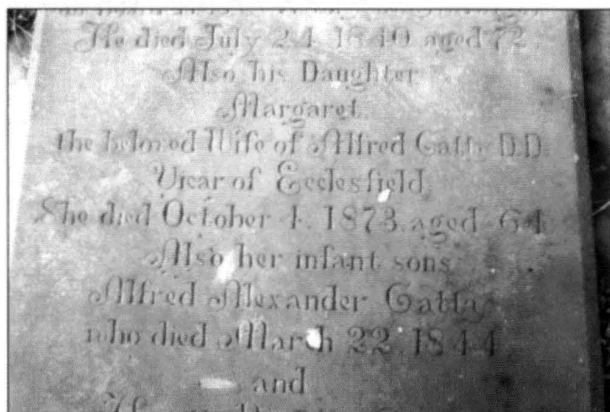 He died July 24 1840 aged 72
Also his Daughter
Margaret
the beloved Wife of Alfred Gatty D.D.
Vicar of Ecclesfield
She died October 4. 1873. aged 64
Also her infant sons
Alfred Alexander Gatty
who died March 22. 1844
and